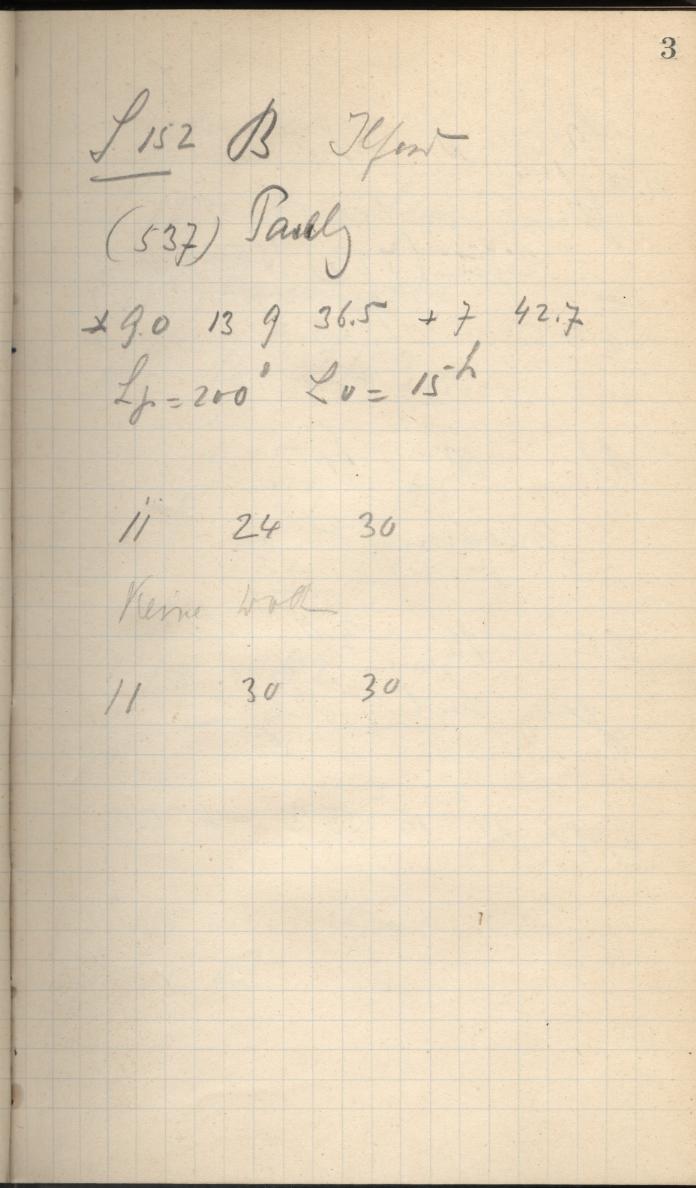 3
S 152 B Ilford
(537) Pauly
* 9.0 13 9 36.5 + 7 42.7
= 200 = 15 h
11 24 30
Keine
11 30 30